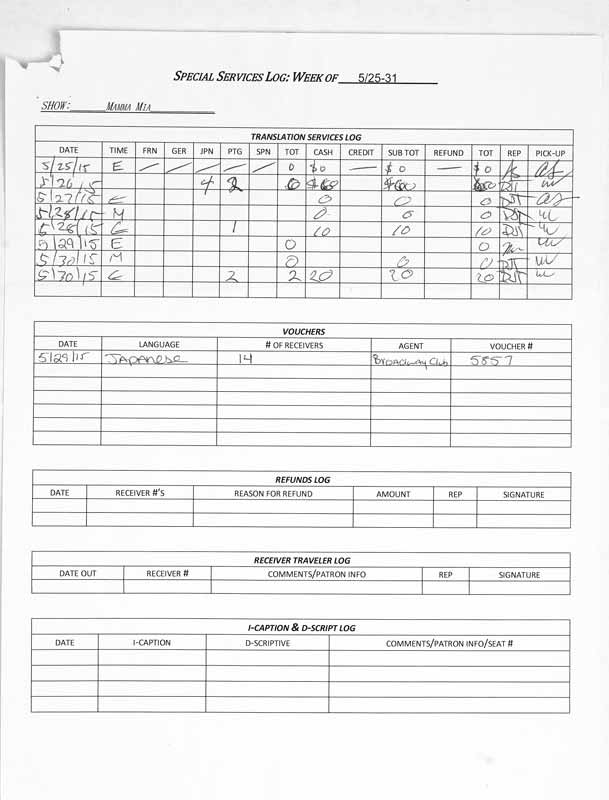 SPECIAL SERVICES LOG: WEEK OF 5/25-31
SHOW: MAMMA MIA
TRANSLATION SERVICES LOG
DATE TIME FRN GER JPN PTG SPN TOT CASH CREDIT SUB TOT REFUND TOT REP PICK-UP
5/25/15 E — — — — — 0 $0 — $0 — $0
5/26/15 4 2 6 $60 $60 DJT
5/27/15 E 0 0 0 DJT
5/28/15 M 0 0 0 DJT
5/28/15 E 1 10 10 10 DJT
5/29/15 E 0 0
5/30/15 M 0 0 0 DJT
5/30/15 E 2 2 20 20 20 DJT
VOUCHERS
DATE LANGUAGE # OF RECEIVERS AGENT VOUCHER #
5/29/15 JAPANESE 14 Broadway Club 5857
REFUNDS LOG
DATE RECEIVER #'S REASON FOR REFUND AMOUNT REP SIGNATURE
RECEIVER TRAVELER LOG
DATE OUT RECEIVER # COMMENTS/PATRON INFO REP SIGNATURE
I-CAPTION & D-SCRIPT LOG
DATE I-CAPTION D-SCRIPTIVE COMMENTS/PATRON INFO/SEAT #